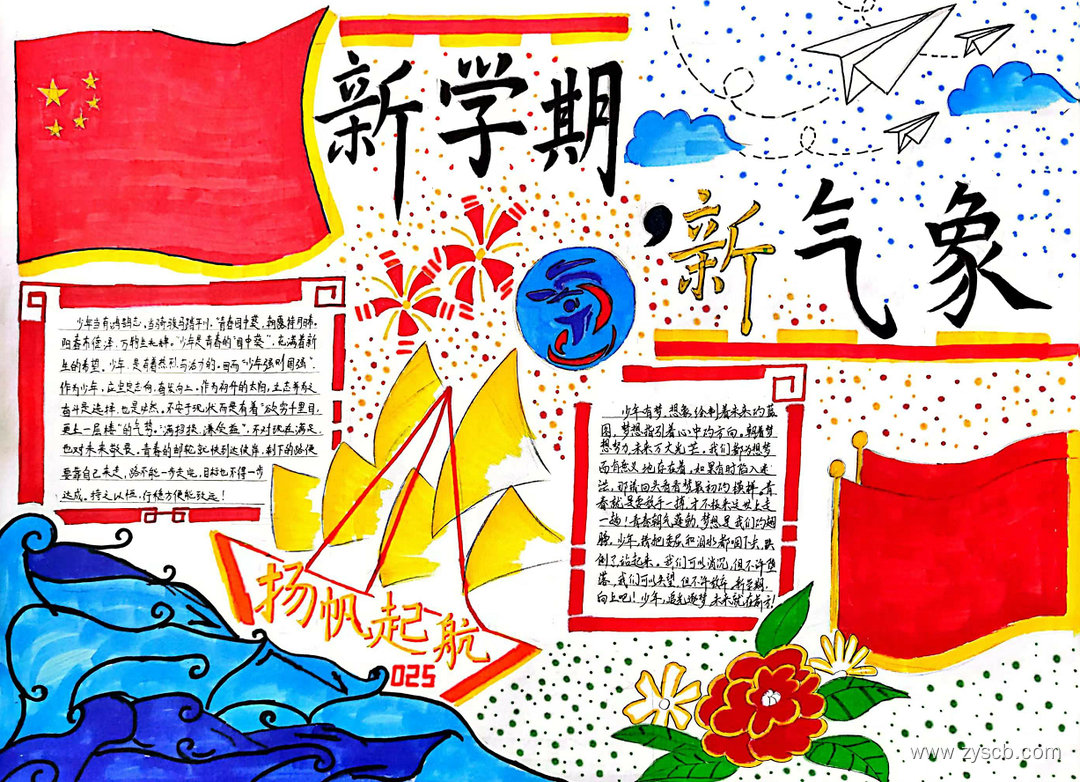 新学期
,新气象
少年当有鸿鹄志,当骑骏马踏平川。青春因
归春有佳泽,万物生光辉。少年是青春的"
生的希望。少年,是青春热烈与活力的。因而"少年强则国强"。
作为少年,应坚定志向,奋发向上。作为
奋斗是选择,也是必然。不安于现状而是有着"欲穷千里目,
更上一层楼"的气势。"满招损,谦受益"。不对现在满足,
也对未来敬畏。青春的邮轮就快到达彼岸,剩下的路便
要靠自己来走,路不能一步走完,目标也不得一步
达成。持之以恒,行稳方便能致远!
少年有梦,想象绘制着未来的蓝
图,梦想指引着心中的方向。朝着梦
想努力,未来万丈光芒。我们都为想梦
而有意义地存在着,如果有时陷入迷
茫,那请回头看看梦最初的模样。青
春就是要放手一搏,才不枉来这世上走
一趟!青春朝气蓬勃,梦想是我们的翅
膀,少年,我把委屈和泪水都咽下去,跌
倒了,站起来,我们可以消沉,但不许堕
落,我们可以失望,但不许放弃。新学期,
向上吧!少年,追光逐梦,未来就在前方!
扬帆起航
2025
www.zyscb.com